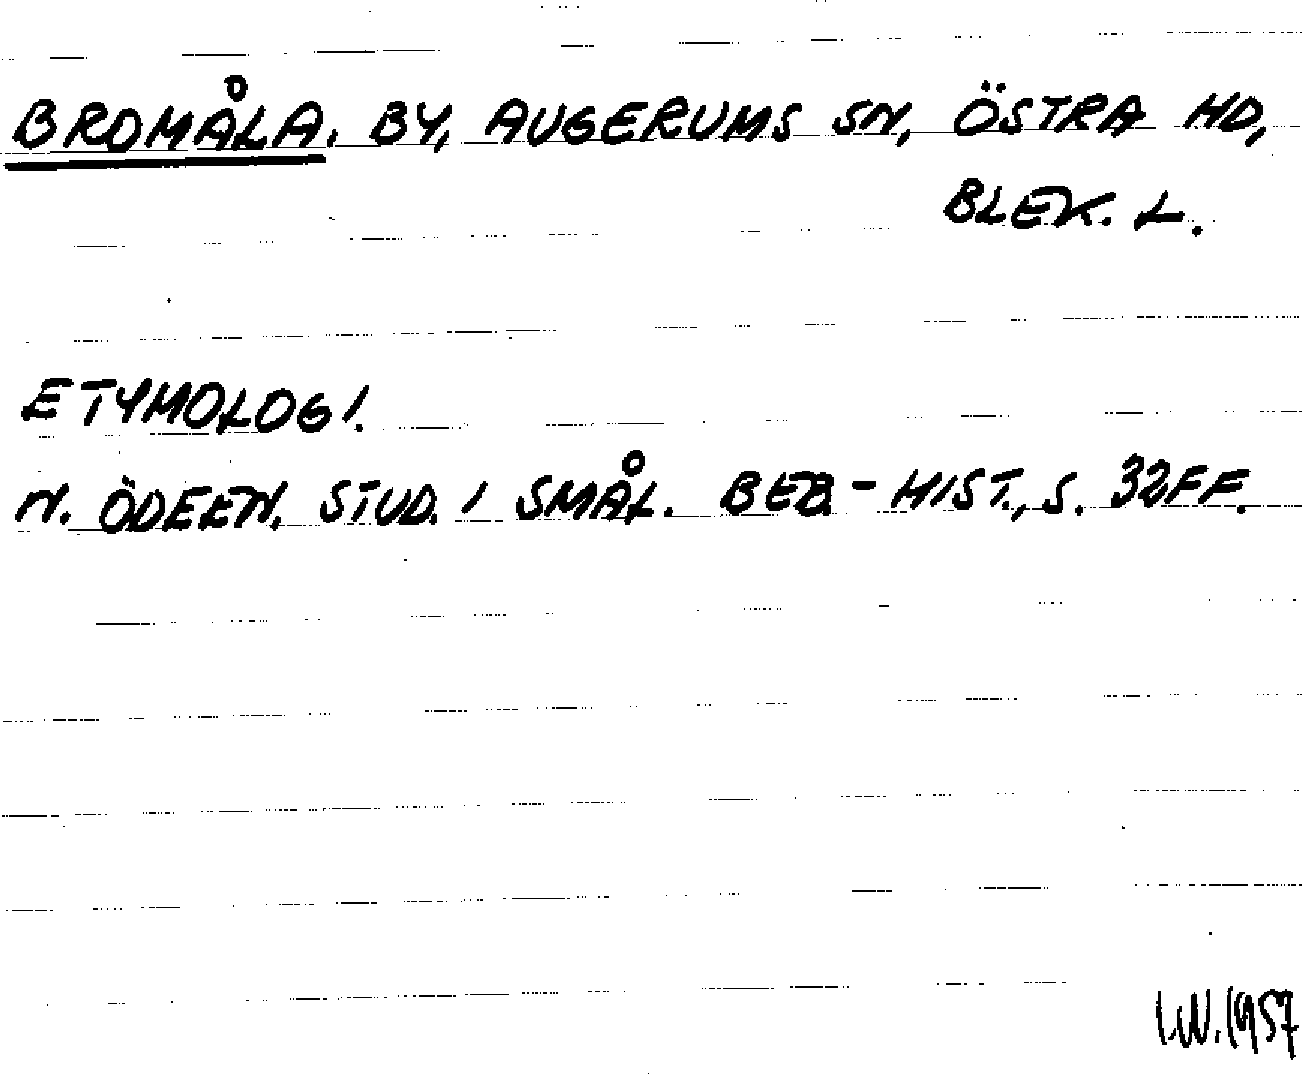 BROMÅLA. BY, AUGERUMS SN, ÖSTRA HD,
BLEK. L.
ETYMOLOGI.
N. ÖDEEN. STUD. I SMÅL. BEB-HIST., S. 32FF.
I.W. 1957